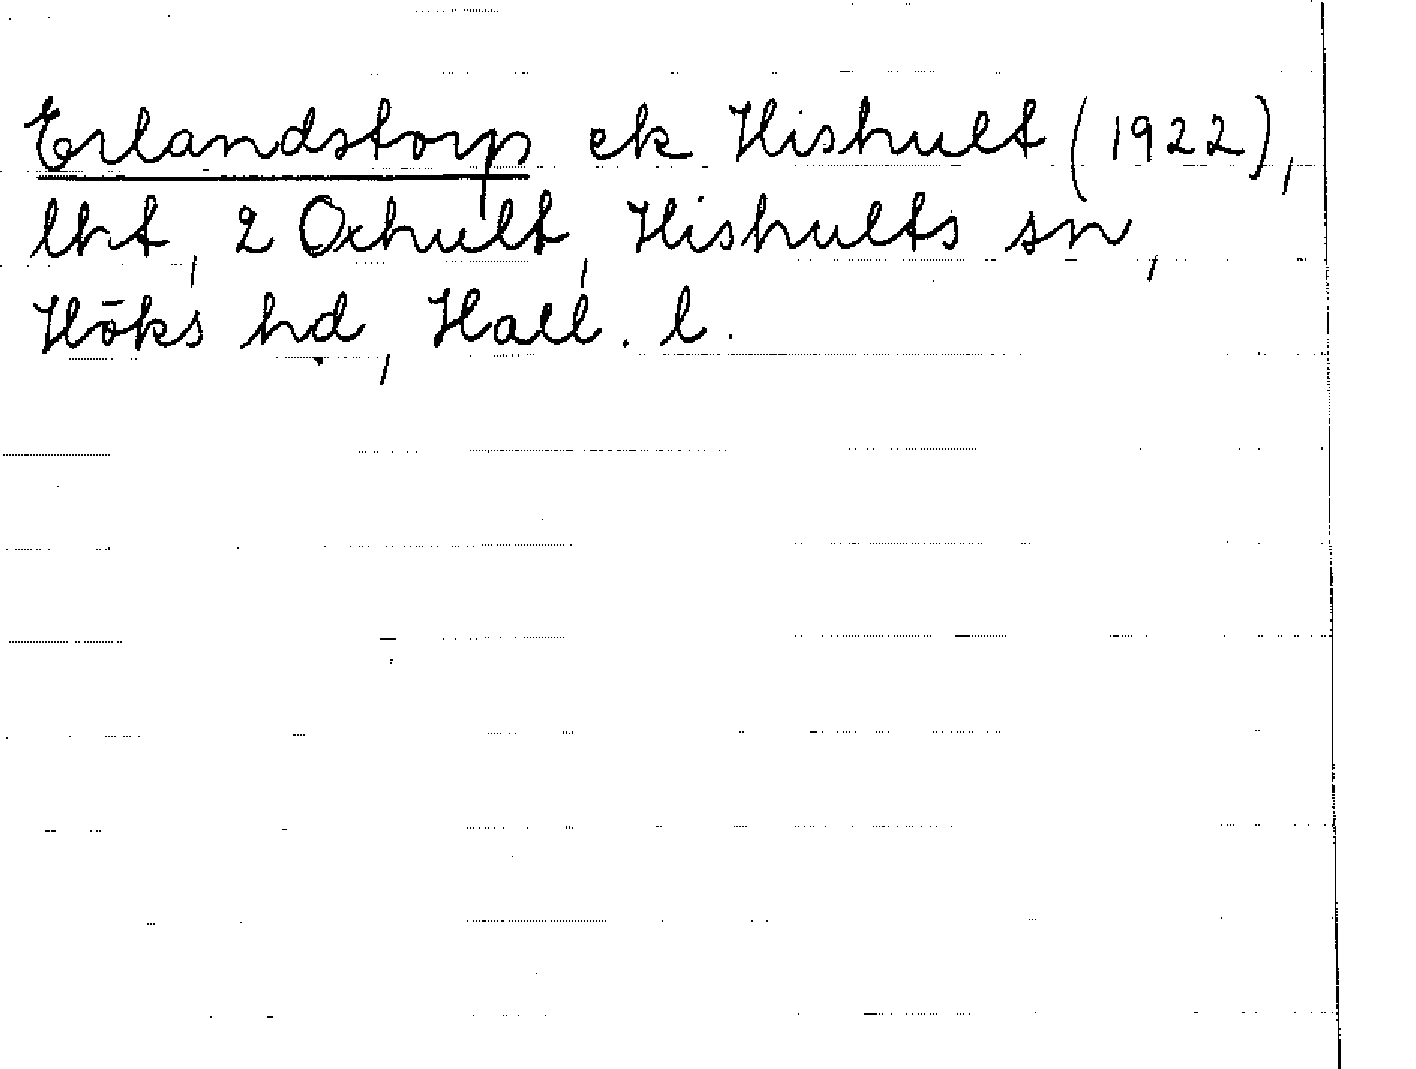 Erlandstorp ek Hishult (1922),
lht, 2 Oxhult, Hishults sn,
Höks hd, Hall. l.